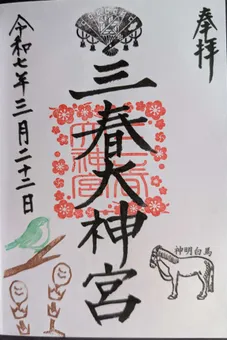 奉拝
三春大神宮
令和七年三月二十二日
神明白馬